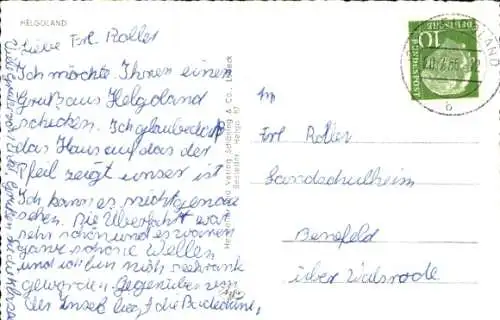 HELGOLAND
Liebe Frl Roller
Ich möchte Ihnen einen
Gruß aus Helgoland
schicken. Ich glaube daß
das Haus auf das der
Pfeil zeigt unser ist
Ich kann es nicht genau
sehen. Die Überfahrt war
sehr schön und es waren
ganz schöne Wellen
und ich bin nich seekrank
geworden. Gegenüber von
der Insel liegt die Badedüne,
Schöning & Co., Lübeck
DEUTSCHE
BUNDESPOST
10
LAND
b
An
Frl Roller
Landschulheim
Benefeld
über Walsrode